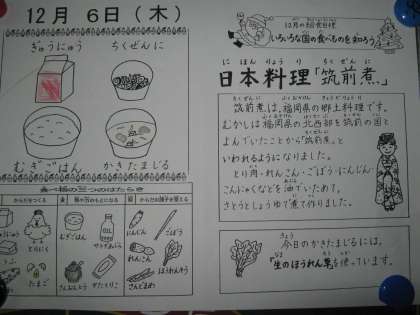 12月 6日(木)
ぎゅうにゅう
ちくぜんに
むぎごはん
かきたまじる
食べ物の三つのはたらき
からだをつくる
熱や力のもとになる
からだの調子を整える
とりにく
たまご
むぎごはん
さんおんとう
かたくりこ
にんじん
ごぼう
れんこん
ほうれんそう
12月の給食目標
いろいろな国の食べものを知ろう
にほんりょうり ちくぜんに
日本料理「筑前煮」
筑前煮は、福岡県の郷土料理です。
むかしは福岡県の北西部を筑前の国と
よんでいたことから「筑前煮」と
いわれるようになりました。
とり肉・れんこん・ごぼう・にんじん・
こんにゃくなどを油でいためて、
さとうとしょうゆで煮て作りました。
きょう
今日のかきたまじるには、
「生のほうれん草」を使っています。